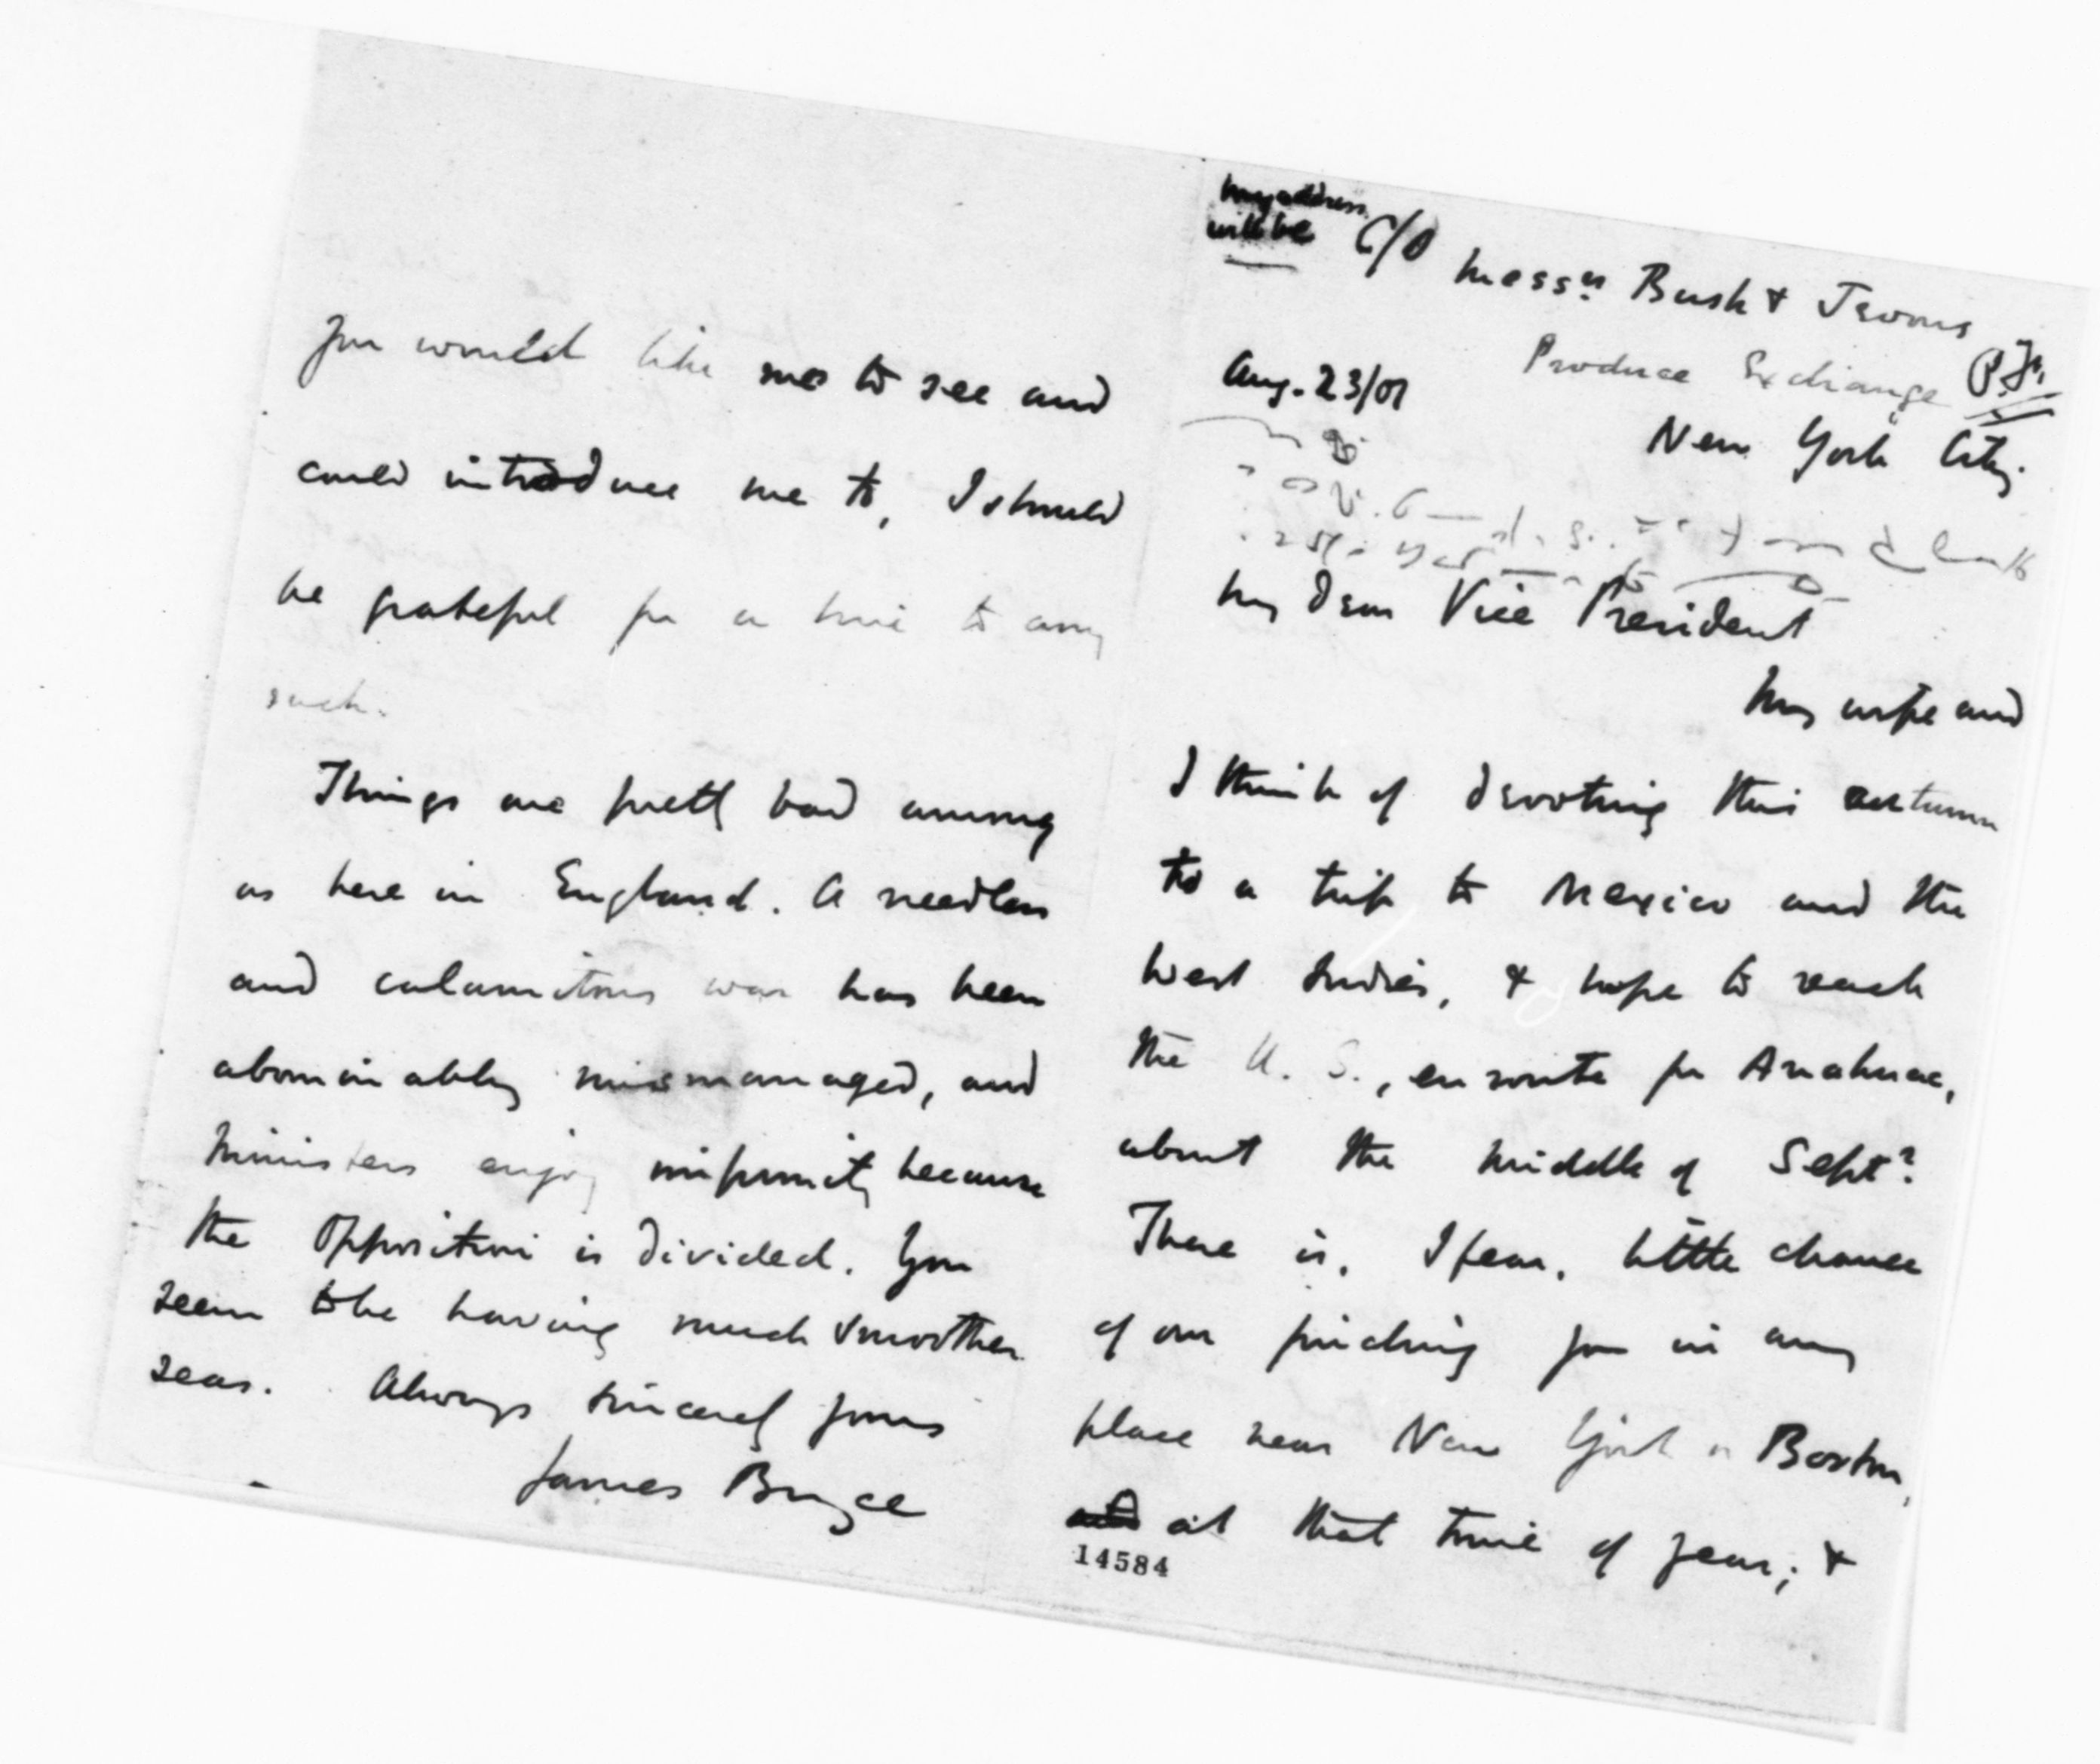 my address
will be C/O Messrs Bush & Jevons
Produce Exchange P.F.
Aug. 23/01
New York City
My dear Vice President
My wife and
I think of devoting this autumn
to a trip to Mexico and the
West Indies, & hope to reach
the U. S., en route for Anahuac,
about the middle of Sept?
There is, I fear, little chance
of our finding you in any
place near New York or Boston,
at that time of year; &
14584
you would like me to see and
could introduce me to, I should
be grateful for a line to any
such.
Things are pretty bad among
us here in England. A needless
and calamitous war has been
abominably mismanaged, and
Ministers enjoy impunity because
the Opposition is divided. You
seem to be having much smoother
seas. Always sincerely yours
James Bryce